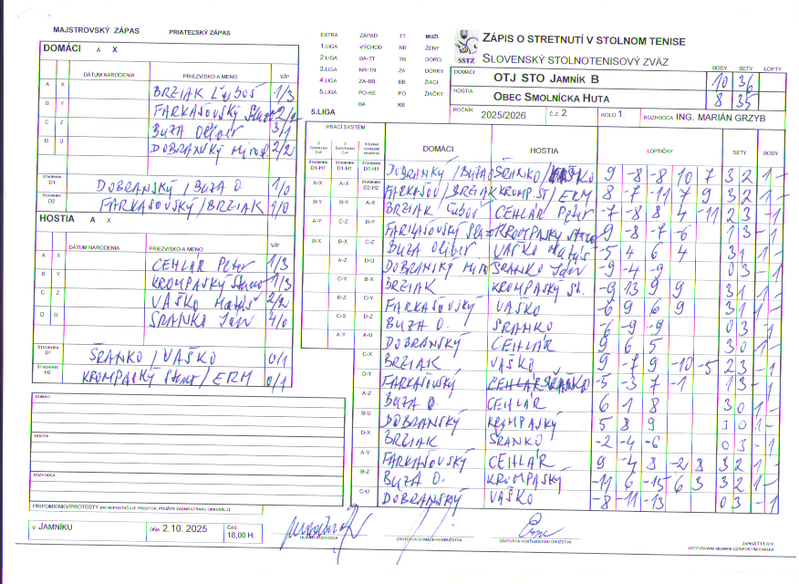 MAJSTROVSKÝ ZÁPAS PRIATEĽSKÝ ZÁPAS
DOMÁCI A X
DÁTUM NARODENIA PRIEZVISKO A MENO V/P
A X BREZIAK Ľuboš 1/3
B Y FARKAŠOVSKÝ 2/2
C Z BUZA Oliver 3/1
D U DOBRANSKÝ Miros. 2/2
ŠTVORHRA D1 DOBRANSKÝ / BUZA O. 1/0
ŠTVORHRA D2 FARKAŠOVSKÝ / BREZIAK 1/0
HOSTIA A X
DÁTUM NARODENIA PRIEZVISKO A MENO V/P
A X CEHLÁR Peter 1/3
B Y KROMPASKÝ 1/3
C Z VAŠKO Matúš 2/2
D U ŠRANKO Ján 4/0
ŠTVORHRA D1 ŠRANKO / VAŠKO 0/1
ŠTVORHRA H2 KROMPASKÝ / ERM 0/1
DOMÁCI
HOSTIA
ROZHODCA
PRIPOMIENKY/PROTESTY
V JAMNÍKU DŇA 2.10. 2025 ČAS 18,00 H.
EXTRA ZÁPAD TT MUŽI
1 LIGA VÝCHOD NR ŽENY
2 LIGA BA-TT TN DORCI
3 LIGA NR-TN ZA DORKY
4 LIGA ZA-BB BB ŽIACI
5 LIGA PO-KE PO ŽIAČKY
BA KE
5.LIGA
SSTZ
ZÁPIS O STRETNUTÍ V STOLNOM TENISE
SLOVENSKÝ STOLNOTENISOVÝ ZVÄZ
BODY SETY LOPTY
DOMÁCI OTJ STO JAMNÍK B 10 36
HOSTIA OBEC SMOLNÍCKA HUTA 8 35
ROČNÍK 2025/2026 Č.Z. 2 KOLO 1. ROZHODCA ING. MARIÁN GRZYB
HRACÍ SYSTÉM DOMÁCI HOSTIA LOPTIČKY SETY BODY
DOBRANSKÝ / BUZA ŠRANKO / VAŠKO 9 -8 -8 10 7 3 2 1 -
FARKAŠOV / BREZIAK KROMP.ST / ERM 8 -7 -11 7 9 3 2 1 -
BREZIAK Ľuboš CEHLÁR Peter -7 -8 8 4 -11 2 3 - 1
FARKAŠOVSKÝ KROMPASKÝ 9 -8 -7 -6 1 3 - 1
BUZA Oliver VAŠKO Matúš -5 4 6 4 3 1 1 -
DOBRANSKÝ Miro ŠRANKO Ján -9 -4 -9 0 3 - 1
BREZIAK KROMPASKÝ St. -9 13 9 9 3 1 1 -
FARKAŠOVSKÝ VAŠKO -6 9 6 9 3 1 1 -
BUZA O. ŠRANKO -6 -9 -9 0 3 - 1
DOBRANSKÝ CEHLÁR 9 6 5 3 0 1 -
BREZIAK VAŠKO 9 -7 9 -10 -5 2 3 - 1
FARKAŠOVSKÝ ŠRANKO -5 -3 7 -1 1 3 - 1
BUZA O. CEHLÁR 6 1 8 3 0 1 -
DOBRANSKÝ KROMPASKÝ 5 8 9 3 0 1 -
BREZIAK ŠRANKO -2 -4 -6 0 3 - 1
FARKAŠOVSKÝ CEHLÁR 9 -4 8 -2 8 3 2 1 -
BUZA O. KROMPASKÝ -11 6 -15 6 3 3 2 1 -
DOBRANSKÝ VAŠKO -8 -11 -13 0 3 - 1